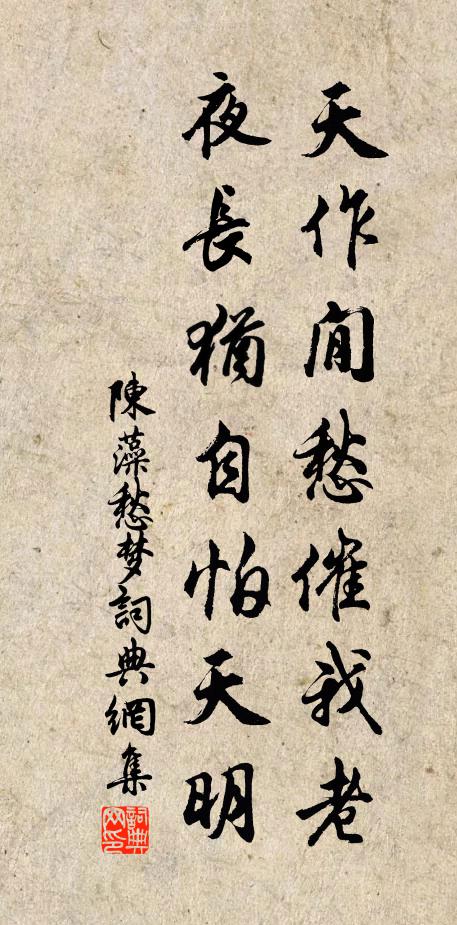 天作閒愁催我老
夜長猶自怕天明
陳藻愁梦詞典網集
詞典网印